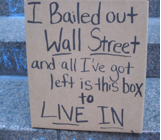 I Bailed out
Wall Street
and all I've got
left is this box
to
LIVE IN